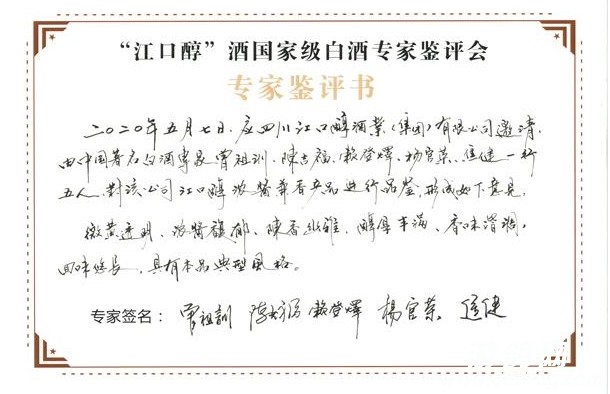 “江口醇”酒国家级白酒专家鉴评会
专家鉴评书
二〇二〇年五月七日,应四川江口醇酒業(集团)有限公司邀请,
由中国著名白酒专家曾祖训、陳吉福、赖登燡、杨官荣、伍健一行
五人,對该公司江口醇浓醬兼香产品进行品鉴,形成如下意見:
微黄透明、浓醬馥郁、陳香幽雅、醇厚丰满、香味谐调,
回味悠長,具有本品典型風格。
专家签名: 曾祖訓 赖登燡 楊官荣